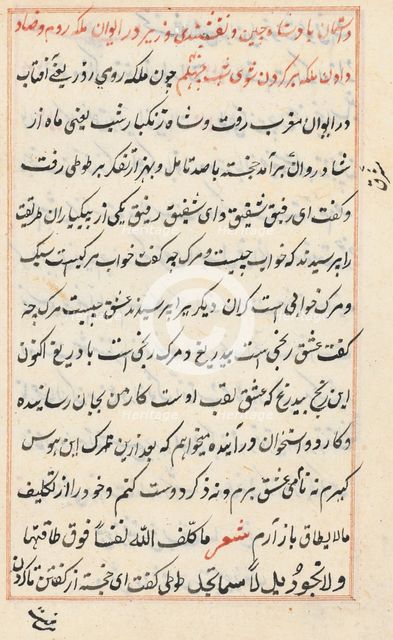 داستان پادشاه چین و نقشبندی وزیر در ایوان ملکه روم و رضا
دادن ملکه بر کردن شوی شب چهلم چون ملکه رومی زد ریعنی آفتاب
در ایوان مغرب رفت و شاه زنکبار شب یعنی ماه از
شاد روان برآمد خجسته با صد تامل و بهزار تفکر بر طوطی رفت
مشرق
و کفت ای رفیق شفیق و ای شفیق رفیق یکی از پیکیاران طریقت
را پرسیدند که خواب چیست و مرک چه کفت خواب مرکیست سبک
و مرک خوابی است کران دیگر پیر را پرسیدند عشق چیست مرک چه
کفت عشق رنجی است بیدریغ و مرک رنجی است با دریغ اکنون
این رنج بیدریغ که عشق لقب اوست کار من بجان رسانیده
و کارد و استخوان درآینده میخواهم که بعد ازین ترک این هوس
کیرم نه نام عشق برم و نه ذکر دوست کنم و خود را از تکلیف
مالایطاق باز آرم شعر ما کلف الله نفسا فوق طاقتها
ولا تجود ید الا بما تجد طوطی کفت ای خجسته از کفتن تا کردن